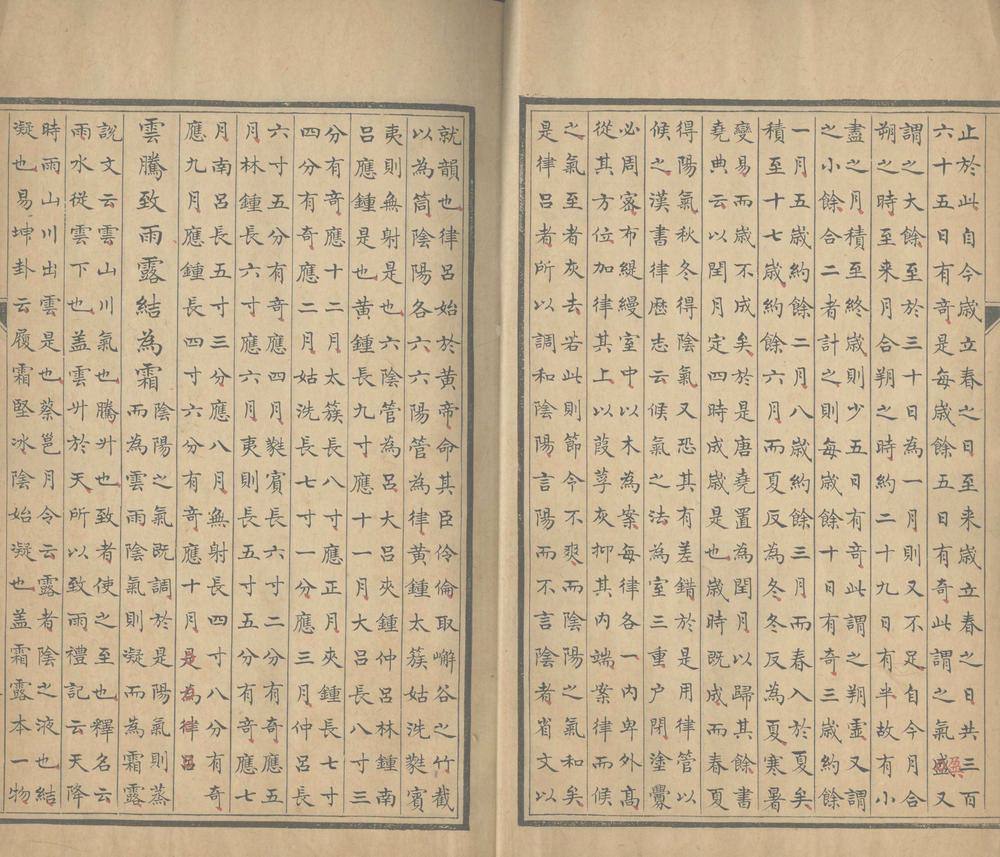 止於此自今歲立春之日至来歲立春之日共三百
六十五日有奇是每歲餘五日有奇此謂之氣盛又
盈
謂之大餘至於三十日為一月則又不足自今月合
朔之時至来月合朔之時約二十九日有半故有小
盡之月積至終歲則少五日有奇此謂之朔虛又謂
之小餘合二者計之則每歲餘十日有奇三歲約餘
一月五歲約餘二月八歲約餘三月而春入於夏矣
積至十七歲約餘六月而夏反為冬冬反為夏寒暑
變易而歲不成矣於是唐堯置為閏月以歸其餘書
堯典云以閏月定四時成歲是也歲時既成而春夏
得陽氣秋冬得陰氣又恐其有差錯於是用律管以
候之漢書律歷志云候氣之法為室三重户閉塗釁
必周密布緹縵室中以木為案每律各一內卑外高
從其方位加律其上以葭莩灰抑其內端案律而候
之氣至者灰去若此則節令不爽而陰陽之氣和矣
是律呂者所以調和陰陽言陽而不言陰者省文以
就韻也律呂始於黃帝命其臣伶倫取嶰谷之竹截
以為筒陰陽各六六陽管為律黃鍾太簇姑洗蕤賓
夷則無射是也六陰管為呂大呂夾鍾仲呂林鍾南
呂應鍾是也黃鍾長九寸應十一月大呂長八寸三
分有奇應十二月太簇長八寸應正月夾鍾長七寸
四分有奇應二月姑洗長七寸一分應三月仲呂長
六寸五分有奇應四月蕤賓長六寸二分有奇應五
月林鍾長六寸應六月夷則長五寸五分有奇應七
月南呂長五寸三分應八月無射長四寸八分有奇
應九月應鍾長四寸六分有奇應十月是為律呂
雲騰致雨露結為霜
陰陽之氣既調於是陽氣則蒸
而為雲雨陰氣則凝而為霜露
說文云雲山川氣也騰升也致者使之至也釋名云
雨水從雲下也盖雲升於天所以致雨禮記云天降
時雨山川出雲是也蔡邕月令云露者陰之液也結
凝也易坤卦云履霜堅冰陰始凝也盖霜露本一物